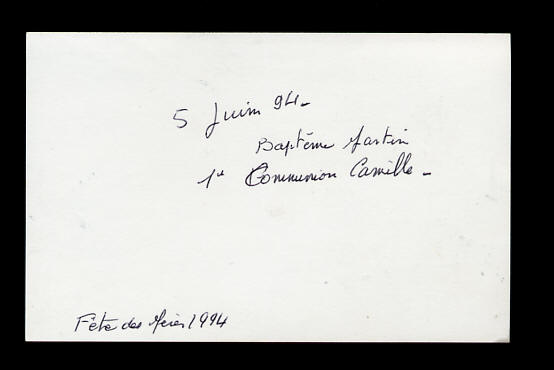 5 Juin 94_
Baptême Martin
1re Communion Camille_
Fête des Mères 1994